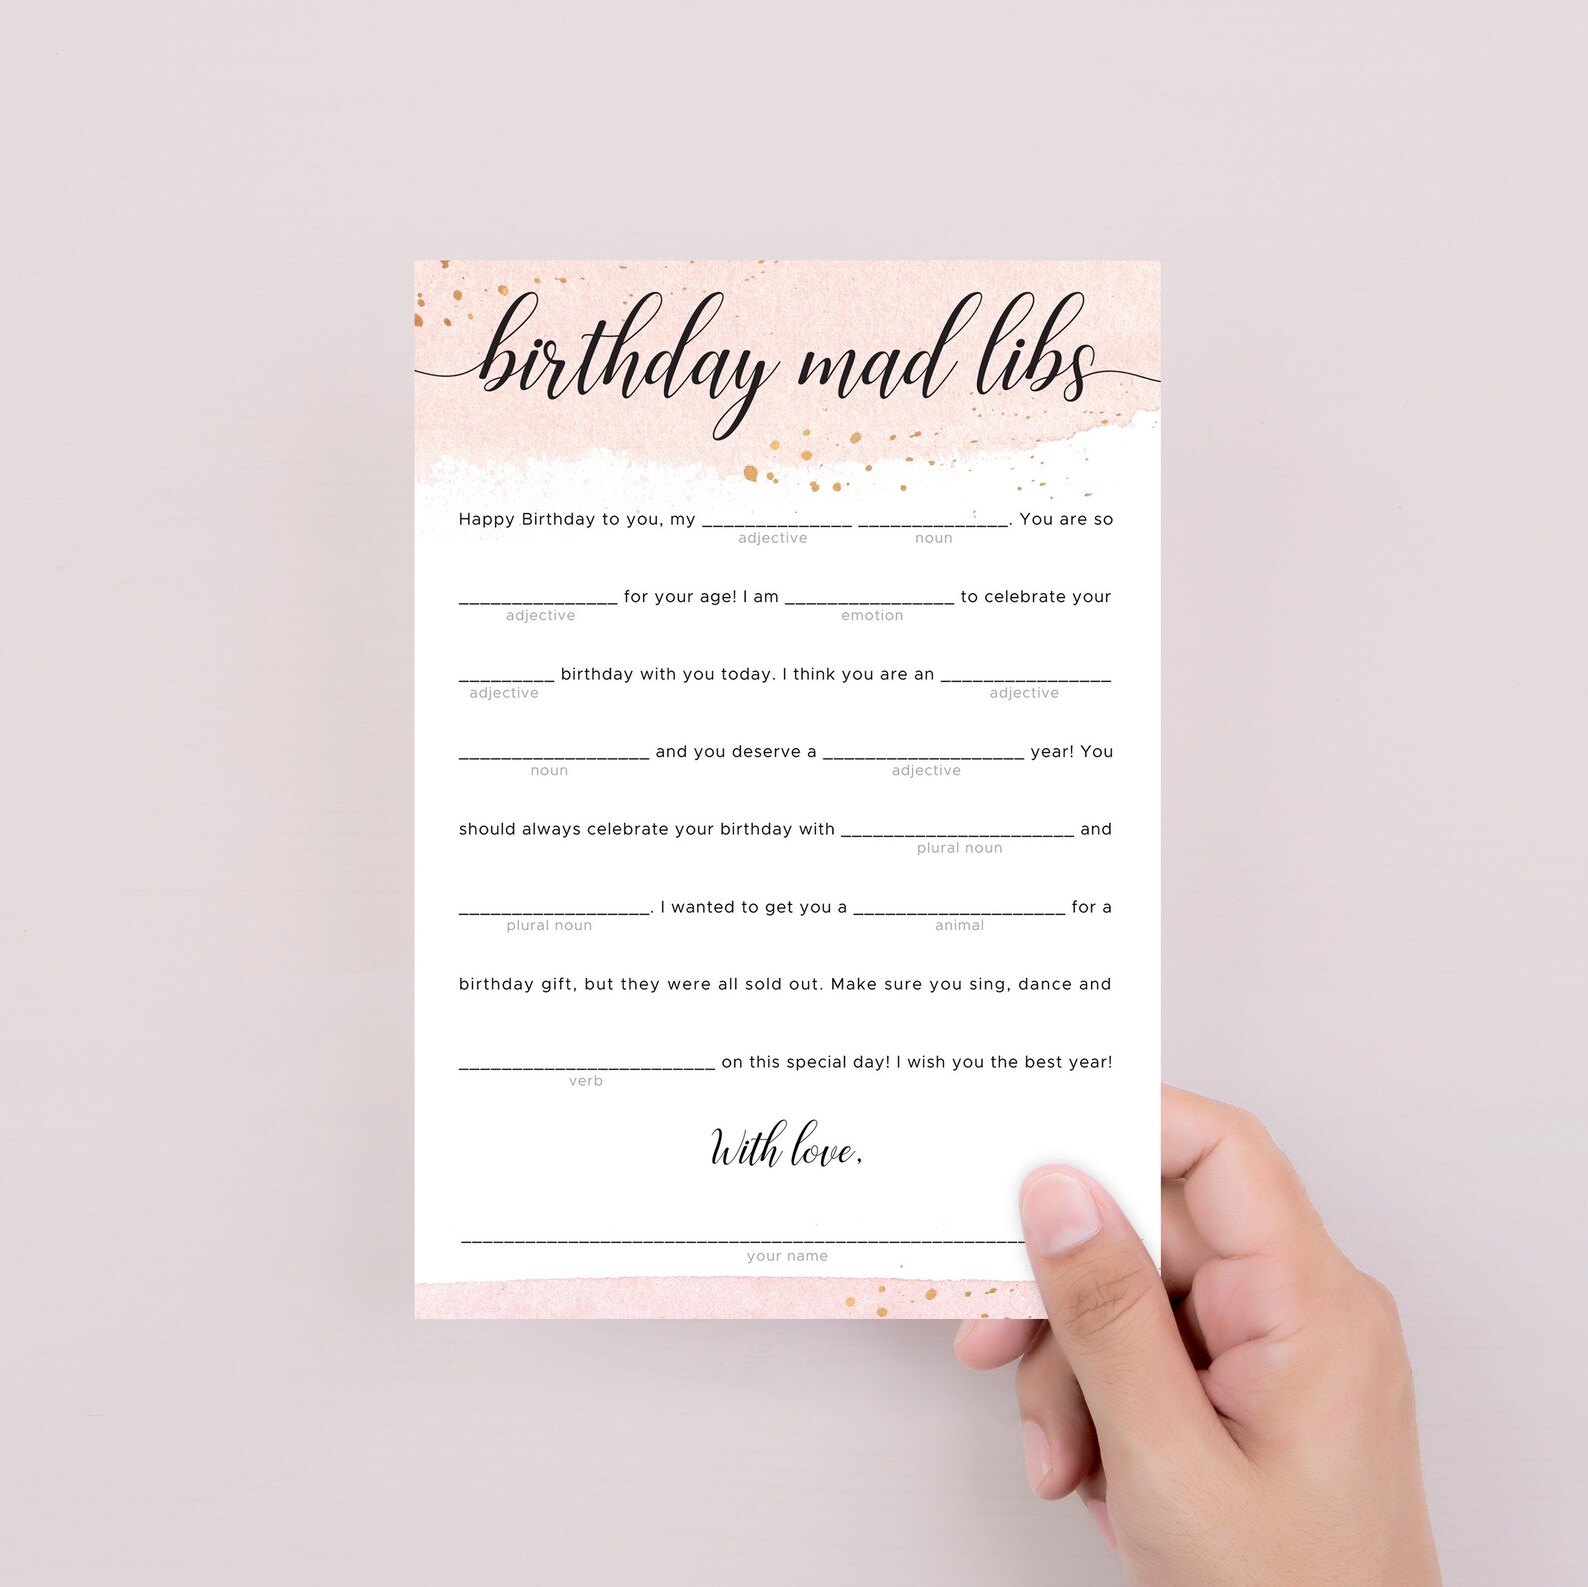 birthday mad libs
Happy Birthday to you, my ______________ ______________. You are so
adjective noun
_______________ for your age! I am ________________ to celebrate your
adjective emotion
_________ birthday with you today. I think you are an ________________
adjective adjective
__________________ and you deserve a ___________________ year! You
noun adjective
should always celebrate your birthday with ______________________ and
plural noun
__________________. I wanted to get you a ____________________ for a
plural noun animal
birthday gift, but they were all sold out. Make sure you sing, dance and
________________________ on this special day! I wish you the best year!
verb
With love,
______________________________________________________
your name